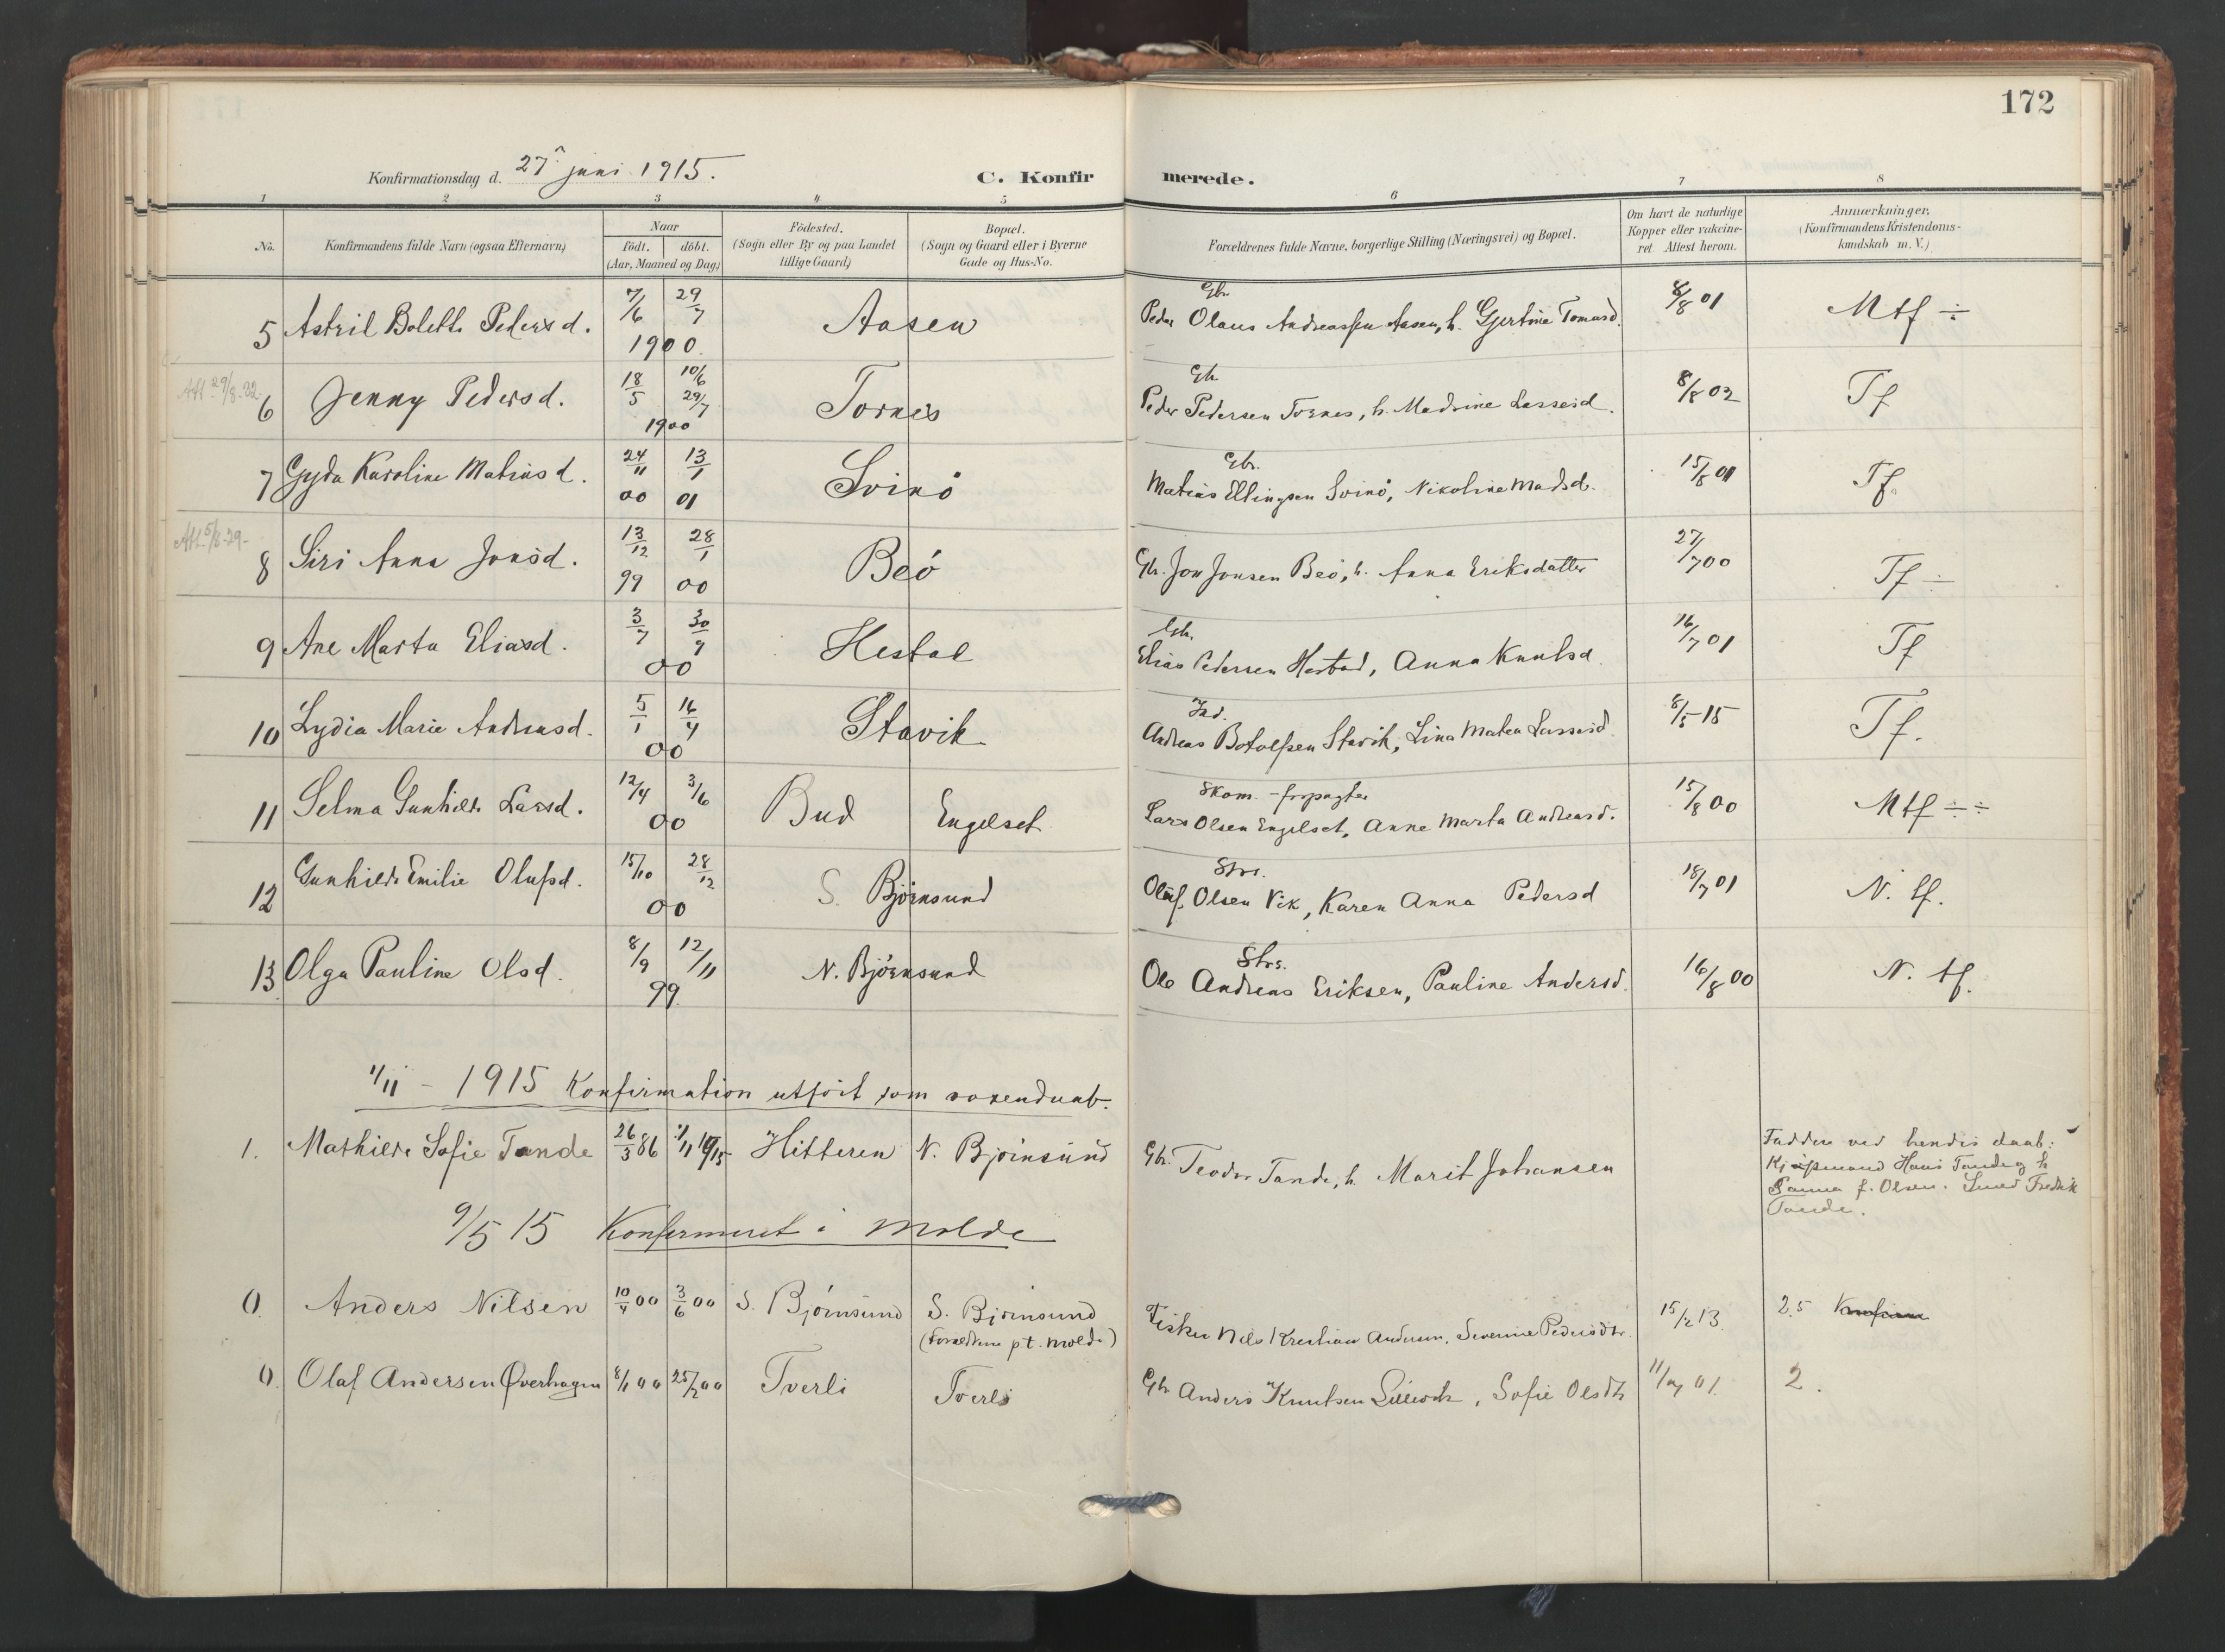 172
Konfirmationsdag d. 27 juni 1915.
C. Konfirmerede.
1 2 3 4 5 6 7 8
No.
Konfirmandens fulde Navn (ogsaa Efternavn)
Naar
födt. döbt.
(Aar, Maaned og Dag)
Födested.
(Sogn eller By og paa Landet
tillige Gaard)
Bopæl.
(Sogn og Gaard eller i Byerne
Gade og Hus-No.
Forældrenes fulde Navne, borgerlige Stilling (Næringsvei) og Bopæl.
Om havt de naturlige
Kopper eller vakcine-
ret Attest herom.
Anmærkninger,
(Konfirmandens Kristendoms-
kundskab m. V.)
5 Astril Bolette Pedersd. 7/6 29/7 1900. Aasen Gbr. Peder Olaus Andreassen Aasen, h. Gjertine Tomasd. 8/8 01 Mtf ÷
Att. 29/8.22
6 Jenny Pedersd. 18/5 10/6 29/7 1900 Tornes Gbr. Peder Pedersen Tornes, h. Madsine Lassesd. 8/8 02 Tf
7 Gyda Karoline Matiasd. 24/11 00 13/1 01 Svinö Gbr. Matias Ellingsen Svinö, Nikoline Madsd. 15/8 01 Tf.
Att. 5/8.29.
8 Siri Anna Jonsd. 13/12 99 28/1 00 Beö Gbr. Jon Jonsen Beö, h. Anna Eriksdatter 27/7 00 Tf ÷
9 Ane Marta Eliasd. 3/7 30/9 00 Hestad Gbr. Elias Pedersen Hestad, Anna Knutsd. 16/7 01 Tf
10 Lydia Marie Andreasd. 5/1 16/4 00 Stavik Ind. Andreas Botolfsen Stavik, Lina Matea Lassesd. 8/5-15 Tf.
11 Selma Gunhilde Larsd. 12/4 3/6 00 Bud Engelset Skom.-forpagter Lars Olsen Engelset, Anne Marta Andreasd. 15/8 00 Mtf ÷ ÷
12 Gunhilde Emilie Olufsd. 15/10 28/12 00 S. Björnsund Strs. Oluf Olsen Vik, Karen Anna Pedersd 18/7 01 N. tf.
13 Olga Pauline Olsd. 8/9 12/11 99 N. Björnsund Strs. Ole Andreas Eriksen, Pauline Andersd. 16/8 00 N. tf.
1/11 - 1915 Konfirmation utfört som voxendaab.
1. Mathilde Sofie Tande 26/3 86 1/11 1915 Hitteren N. Björnsund Gbr. Teodor Tande, h. Marit Johansen
Faddere ved hendes daab:
Kjöpmand Hans Tande og h
Sanna f. Olsen. Smed Fredrik
Tande.
9/5 15 Konfirmeret i Molde
0. Anders Nilsen 10/4 00 3/6 00 S. Björnsund S. Björnsund Fisker Nils Kristian Andersen, Severine Pedersdtr. 15/2 13. 2.5 Konfirm
(Forældrene p.t. Molde)
0. Olaf Andersen Överhagen 8/1 00 25/2 00 Tverli Tverli Gbr Anders Knutsen , Sofie Olsdtr 11/7 01. 2.